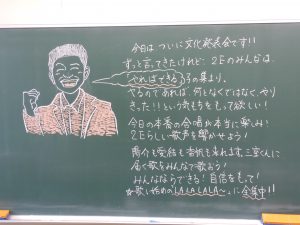 今日は、ついに文化発表会です!!
ずっと言ってきたけれど、2Eのみんなは、
やればできる子の集まり。
やるのであれば、何となくではなく、やり
きった!!という気もちをもって欲しい!
今日の本番の合唱が本当に楽しみ!
2Eらしい歌声を響かせよう!
届く歌をみんなで歌おう!
みんなならできる!自信をもって!
☆歌い始めのLALALALA〜に全集中!!